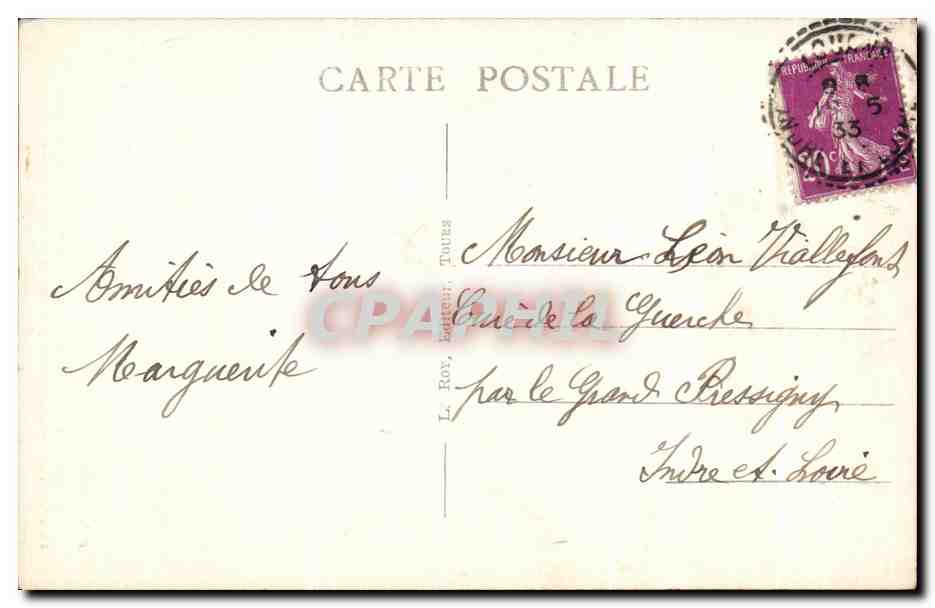 CARTE POSTALE
RÉPUBLIQUE FRANÇAISE
5
33
20c
INDRE ET LOIRE
Amitiés de tous
Marguerite
L. Roy, Editeur, Tours
Monsieur Léon Viallefond
Curé de la Guerche
par le Grand Pressigny
Indre et Loire
CPAPHIL